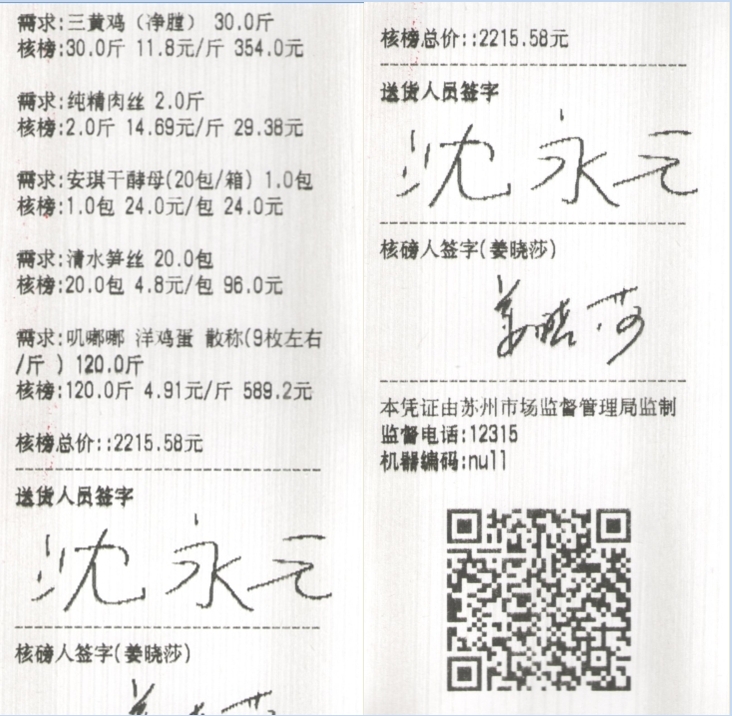 需求:三黄鸡（净膛） 30.0斤
核榜:30.0斤 11.8元/斤 354.0元
需求:纯精肉丝 2.0斤
核榜:2.0斤 14.69元/斤 29.38元
需求:安琪干酵母(20包/箱) 1.0包
核榜:1.0包 24.0元/包 24.0元
需求:清水笋丝 20.0包
核榜:20.0包 4.8元/包 96.0元
需求:叽嘟嘟 洋鸡蛋 散称(9枚左右
/斤 ) 120.0斤
核榜:120.0斤 4.91元/斤 589.2元
核榜总价::2215.58元
送货人员签字
沈永元
核磅人签字(姜晓莎)
核榜总价::2215.58元
送货人员签字
沈永元
核磅人签字(姜晓莎)
姜晓莎
本凭证由苏州市场监督管理局监制
监督电话:12315
机器编码:null